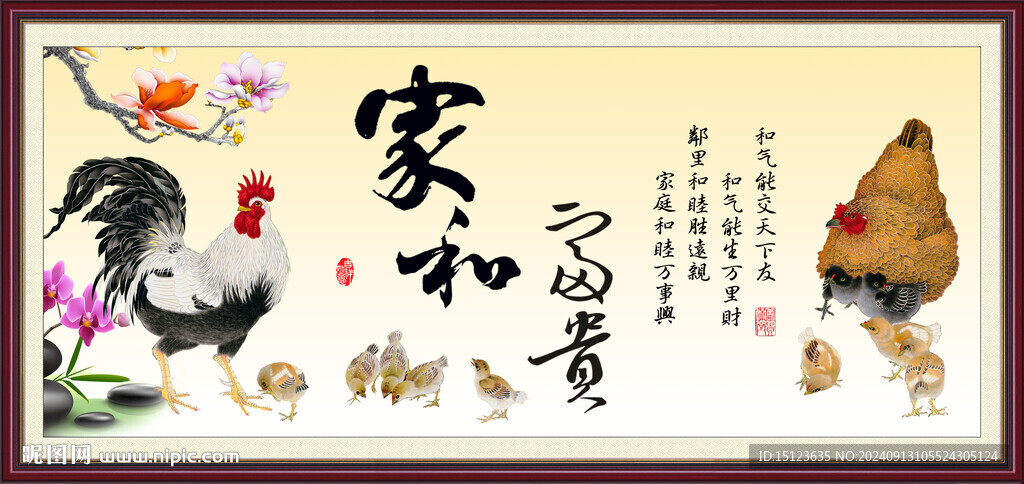 家和
富貴
和气能交天下友
和气能生万里財
鄰里和睦胜遠親
家庭和睦万事興
昵图网 www.nipic.com
ID:15123635 NO:20240913105524305124